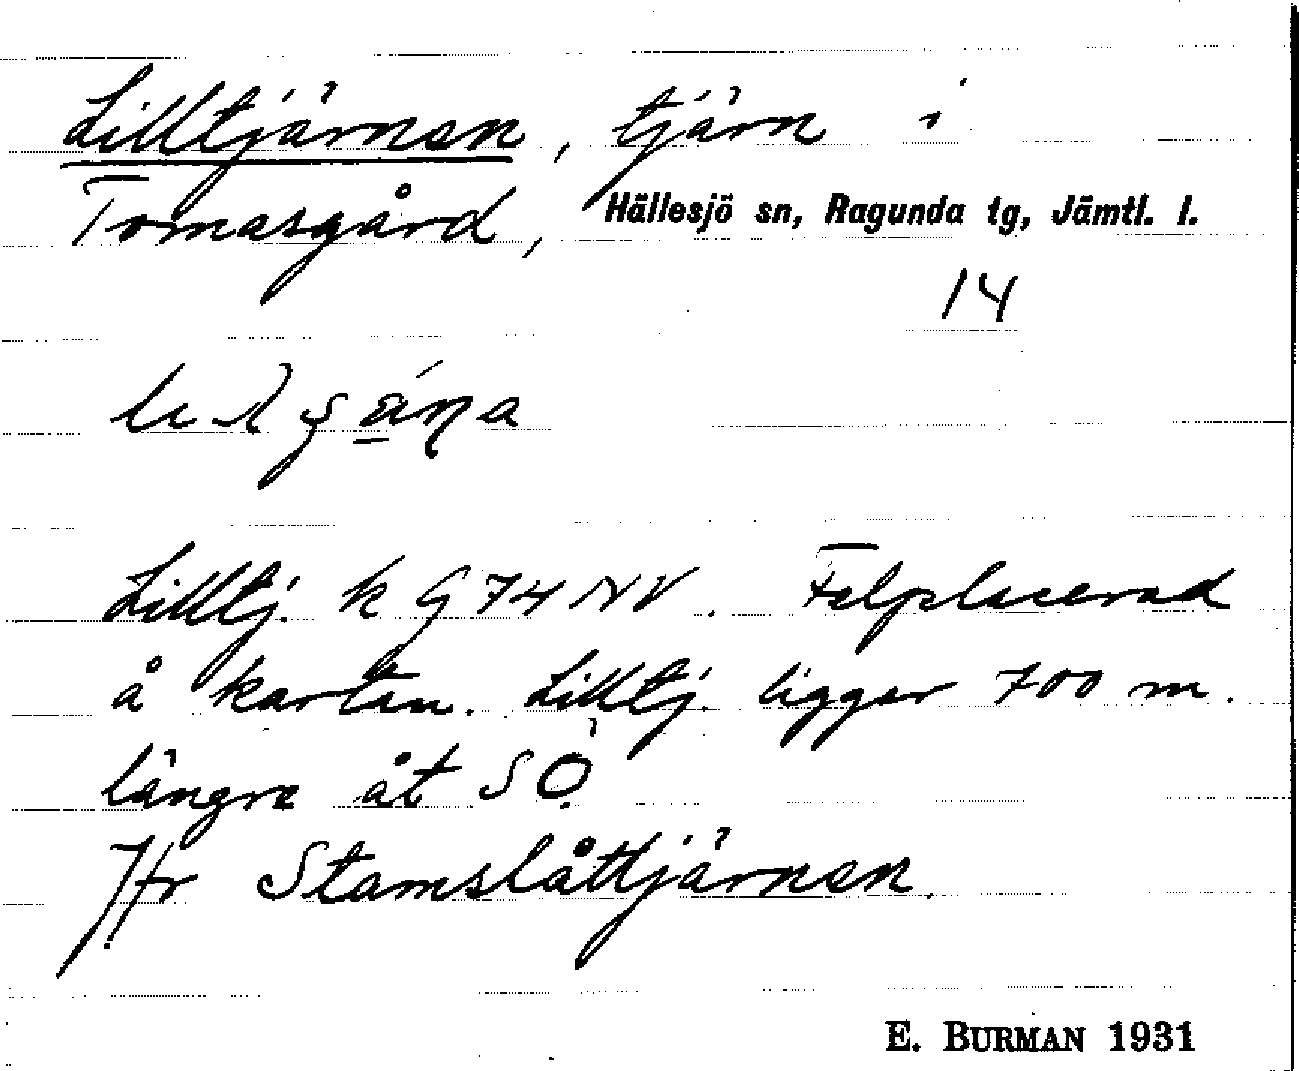 Lilltjärnen, tjärn i
Tomasgård, Hällesjö sn, Ragunda tg, Jämtl. l.
14
Lilltj. k G 74 NV. Felplacerad
å kartan. Lilltj. ligger 700 m.
längre åt SÖ.
Jfr Stamslåttjärnen.
E. BURMAN 1931